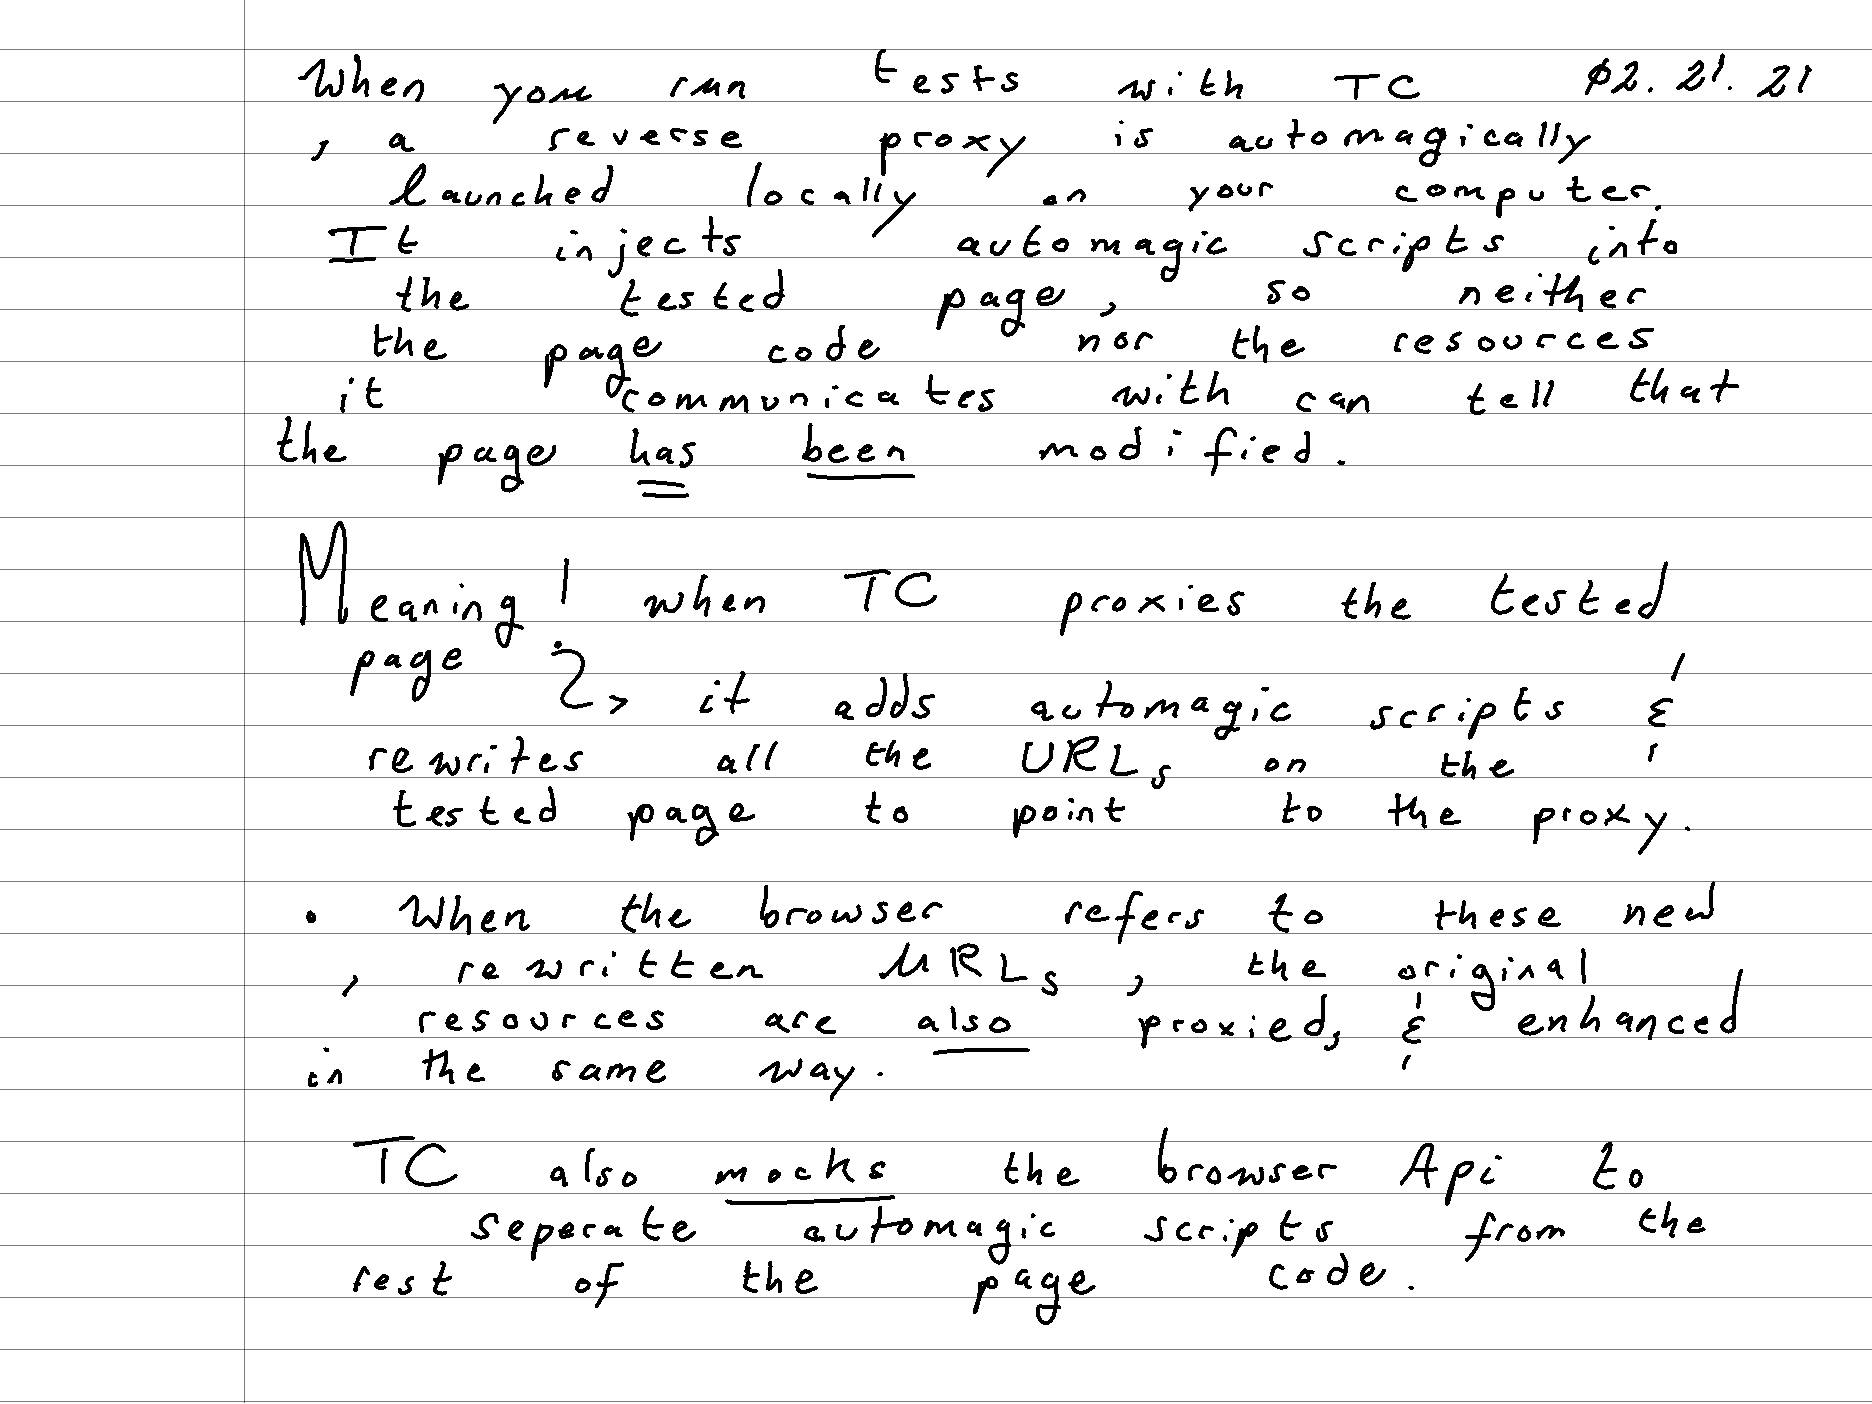 When you run tests with TC 02.21.21
, a reverse proxy is automagically
launched locally on your computer.
It injects automagic scripts into
the tested page, so neither
the page code nor the resources
it communicates with can tell that
the page has been modified.
Meaning! when TC proxies the tested
page
> it adds automagic scripts &
rewrites all the URLs on the
tested page to point to the proxy.
• When the browser refers to these new
, rewritten URLs, the original
resources are also proxied, & enhanced
in the same way.
TC also mocks the browser Api to
seperate automagic scripts from the
rest of the page code.